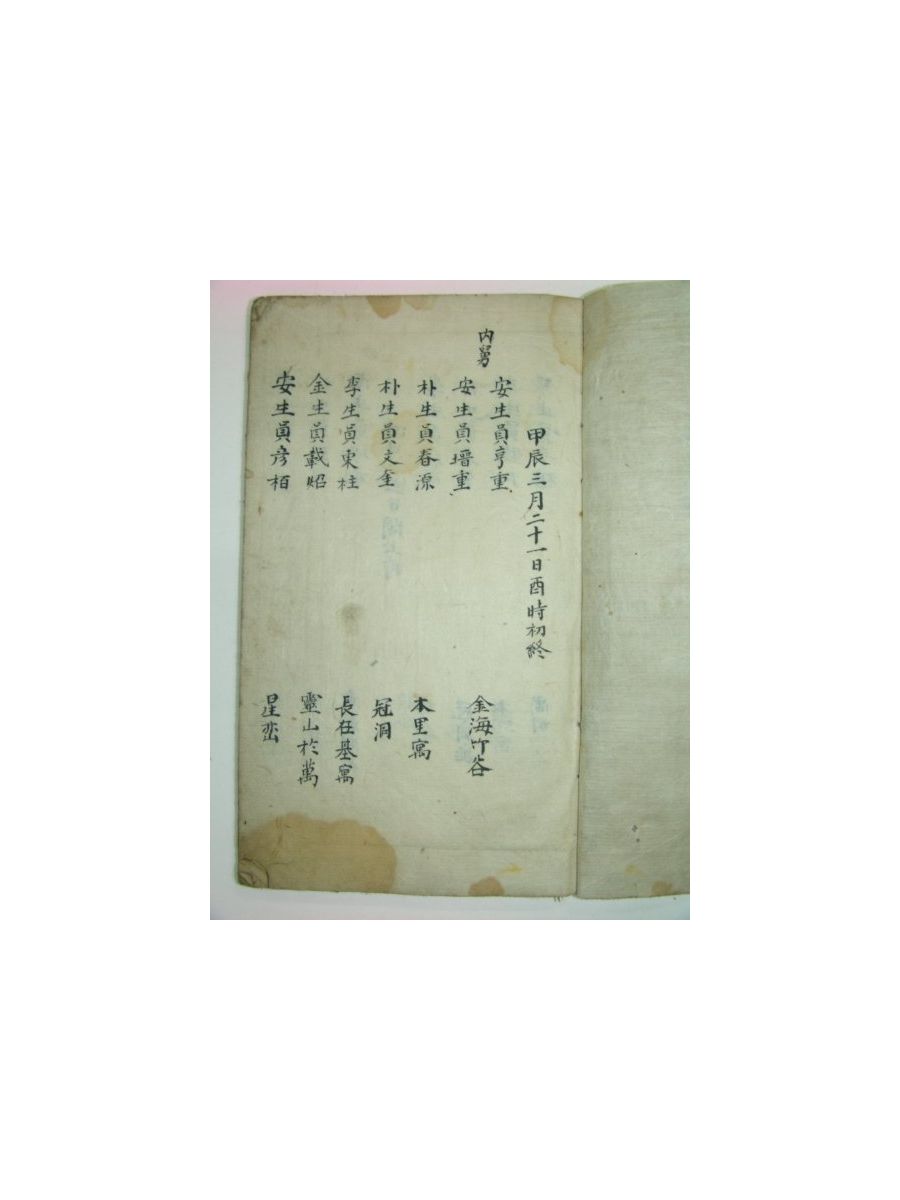 甲辰三月二十一日酉時初終
內舅
安生員亨重
安生員瑨重 金海竹谷
朴生員春源 本里寓
朴生員文奎 冠洞
李生員東柱 長在基寓
金生員載炤 靈山於萬
安生員彦栢 星巒